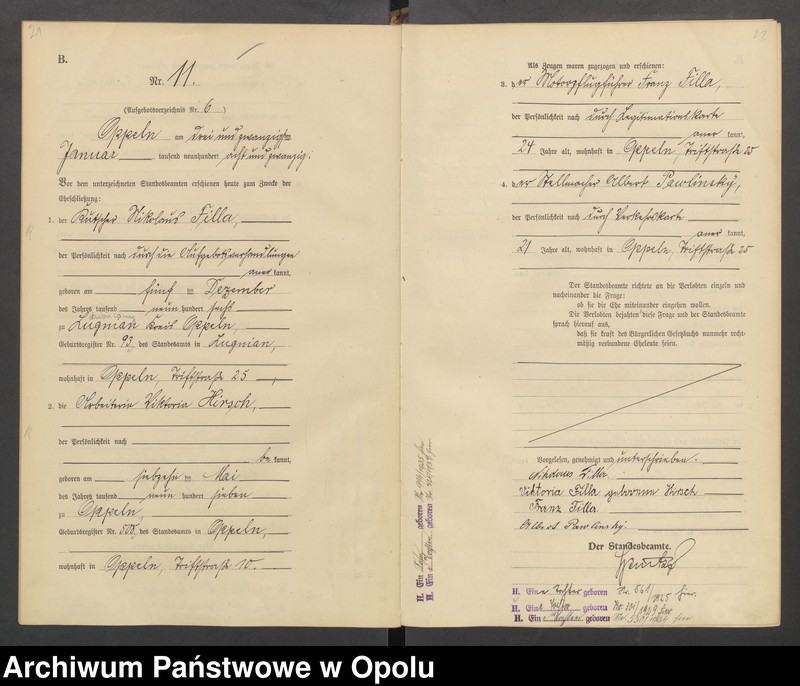 21
B.
Nr. 11.
(Aufgebotsverzeichnis Nr. 6)
Oppeln am drei und zwanzigsten
Januar tausend neunhundert acht und zwanzig.
Vor dem unterzeichneten Standesbeamten erschienen heute zum Zwecke der
Eheschließung:
1. der Kutscher Nikolaus Filla,
der Persönlichkeit nach durch die Aufgebotsverhandlungen
aner kannt,
geboren am fünf ten Dezember
des Jahres tausend neun hundert sechs
zu Lugnian Kreis Oppeln,
Geburtsregister Nr. 93, des Standesamts in Lugnian,
wohnhaft in Oppeln, Triftstraße 25,
2. die Arbeiterin Viktoria Hirsch,
der Persönlichkeit nach
be kannt,
geboren am siebzehn ten Mai
des Jahres tausend neun hundert sieben
zu Oppeln,
Geburtsregister Nr. 508, des Standesamts in Oppeln,
wohnhaft in Oppeln, Triftstraße 10.
22
Als Zeugen waren zugezogen und erschienen:
3. der Motorpflugführer Franz Filla,
der Persönlichkeit nach durch Legitimationskarte
aner kannt,
24 Jahre alt, wohnhaft in Oppeln, Triftstraße 25
4. der Stellmacher Albert Pawlinsky,
der Persönlichkeit nach durch Verkehrskarte
aner kannt,
21 Jahre alt, wohnhaft in Oppeln, Triftstraße 25
Der Standesbeamte richtete an die Verlobten einzeln und
nacheinander die Frage:
ob sie die Ehe miteinander eingehen wollen.
Die Verlobten bejahten diese Frage und der Standesbeamte
sprach hierauf aus,
daß sie kraft des Bürgerlichen Gesetzbuchs nunmehr recht-
mäßig verbundene Eheleute seien.
Vorgelesen, genehmigt und unterschrieben.
Nikolaus Filla
Viktoria Filla geborene Hirsch
Franz Filla
Albert Pawlinsky
Der Standesbeamte.
H. Eine Tochter geboren Nr. 561/1925 hier.
H. Eine Tochter geboren Nr. 1929 hier
H. Eine Tochter geboren Nr. hier
H. Ein geboren Nr. hier
H. Eine geboren Nr. hier
Archiwum Państwowe w Opolu